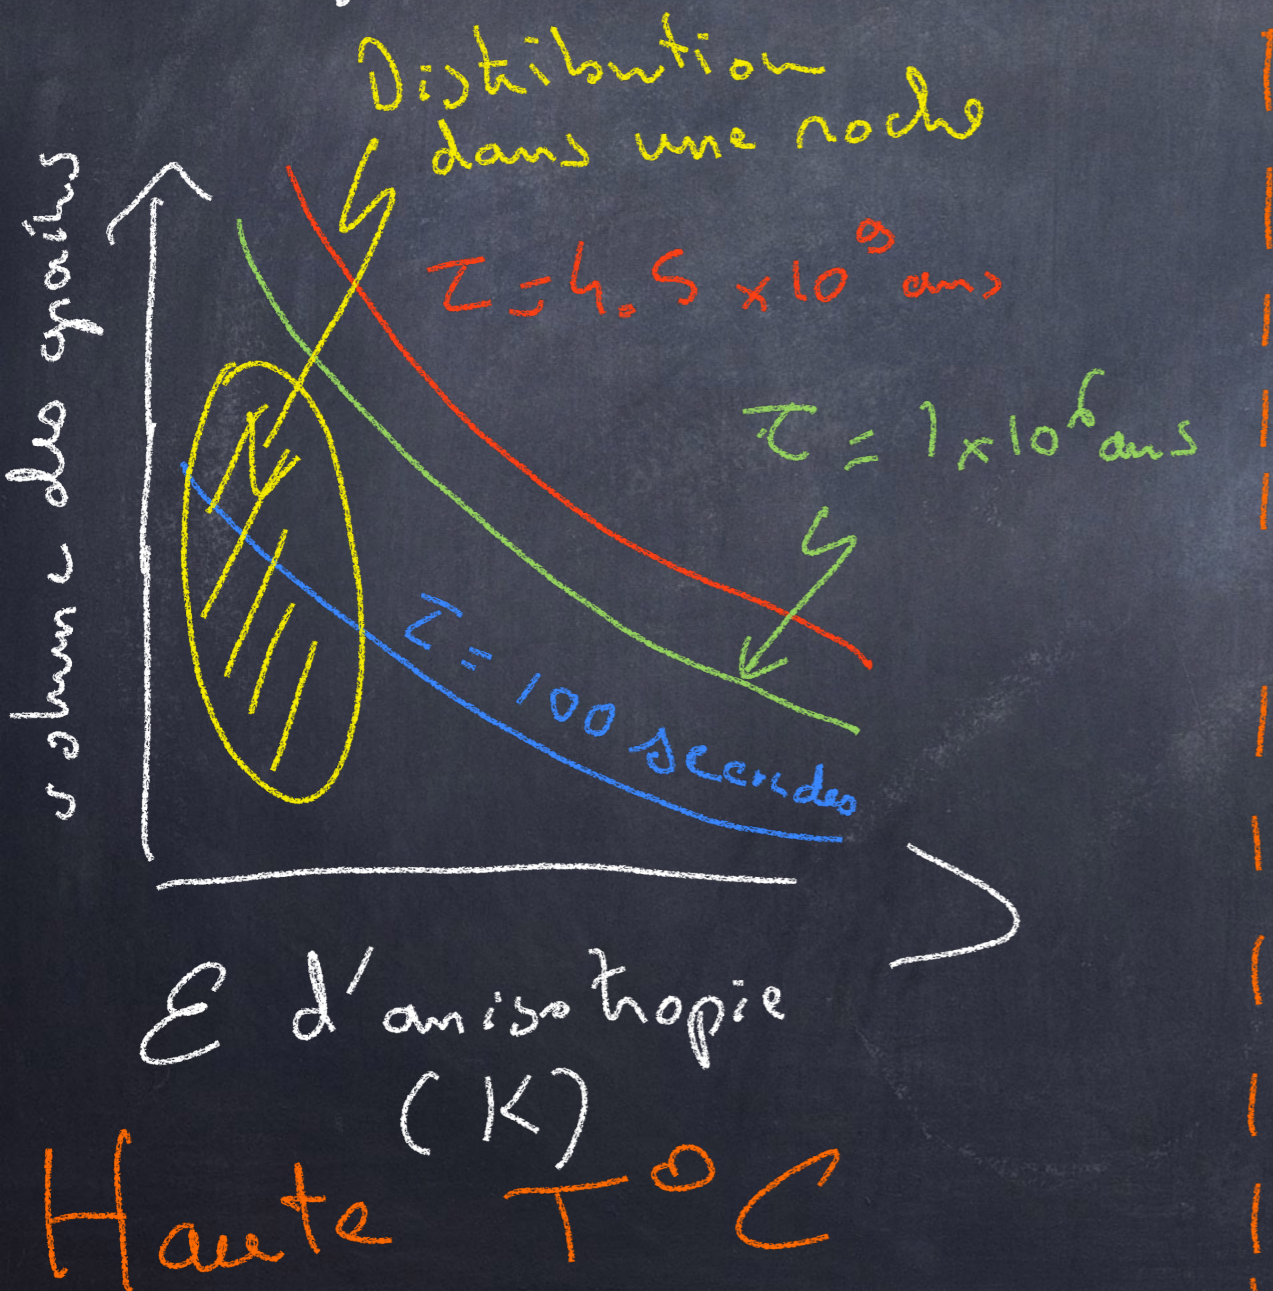 Distribution
dans une roche
volume des grains
τ = 4.5 × 10⁹ ans
τ = 1 × 10⁶ ans
τ = 100 secondes
E d'anisotropie
(K)
Haute T°C